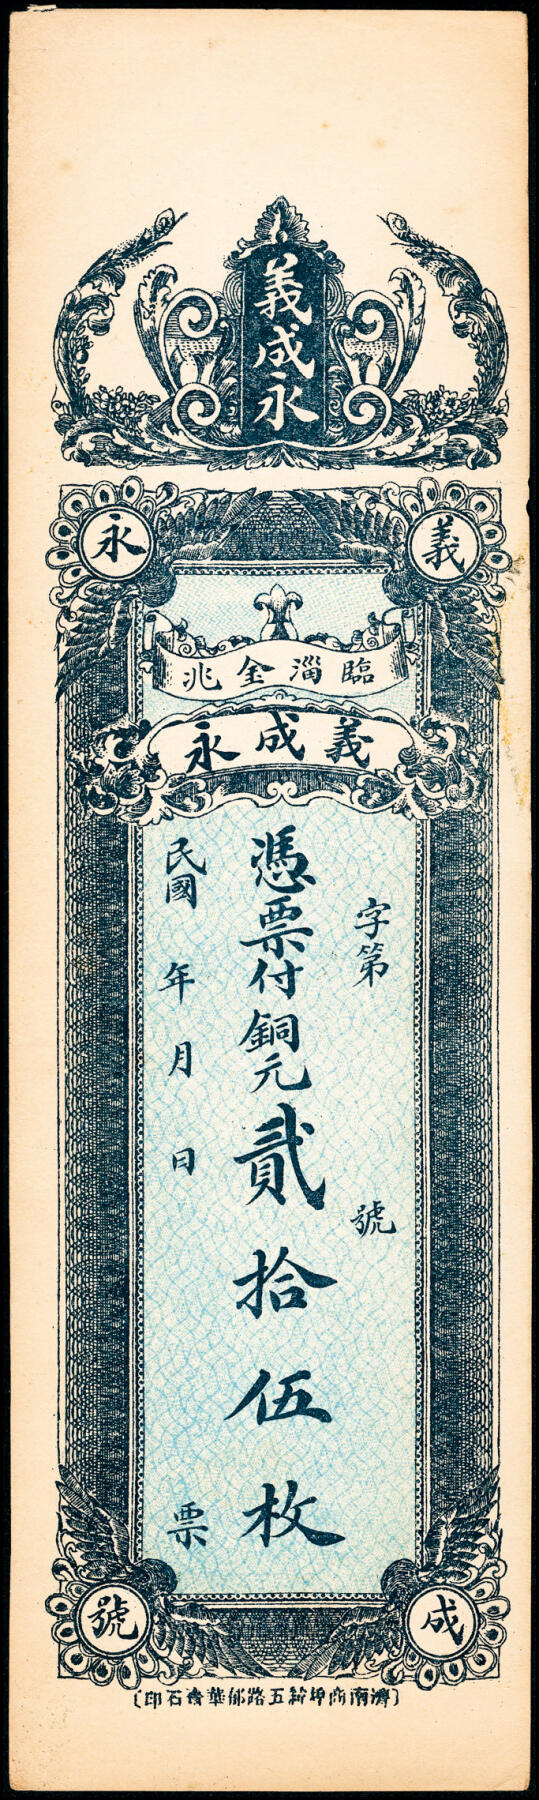 義成永
義
永
成
號
臨淄金兆
義成永
字第
號
憑票付銅元貳拾伍枚
民國
年
月
日
票
濟南商埠緯五路郁華齋石印